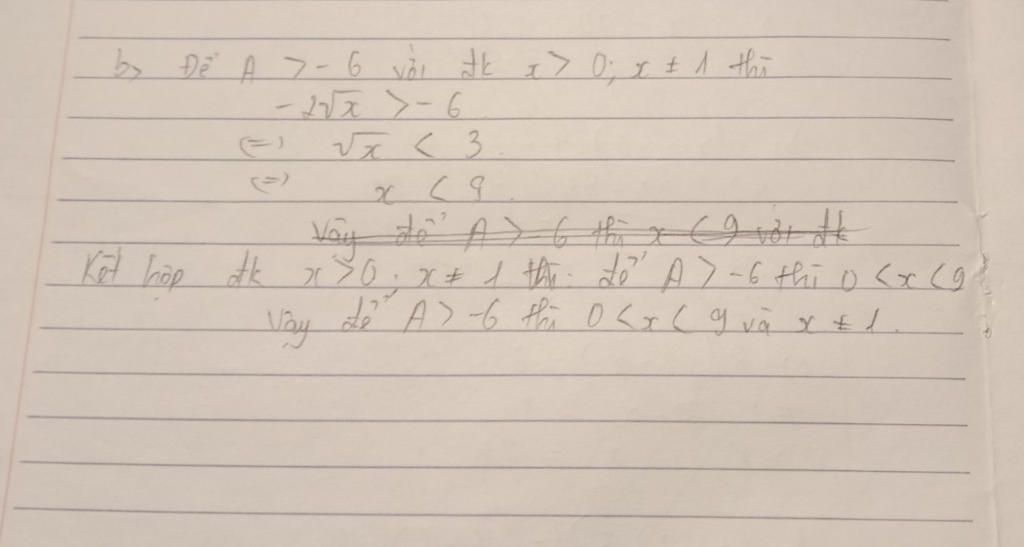 b, Để A > -6 với đk x > 0; x ≠ 1 thì
-2√x > -6
(=) √x < 3.
(=) x < 9.
Vậy để A > -6 thì x < 9 với đk
Kết hợp đk x > 0; x ≠ 1 thì: để A > -6 thì 0 < x < 9
Vậy để A > -6 thì 0 < x < 9 và x ≠ 1.